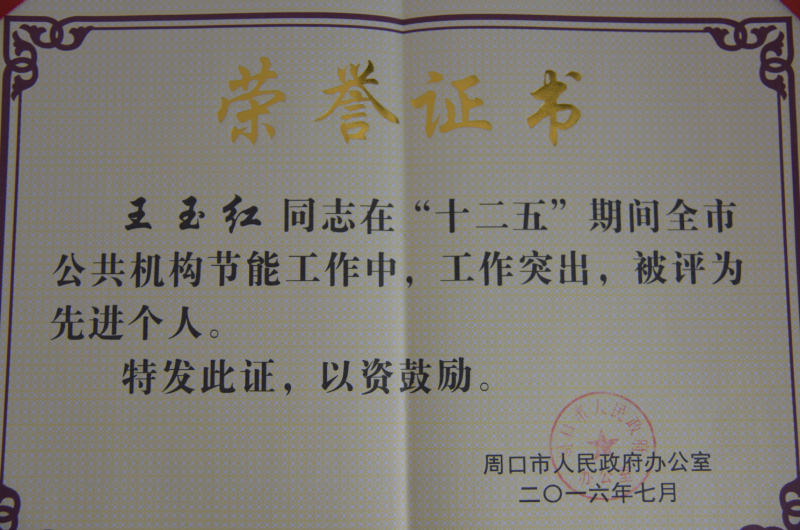 荣誉证书
王玉红同志在“十二五”期间全市
公共机构节能工作中，工作突出，被评为
先进个人。
特发此证，以资鼓励。
周口市人民政府办公室
二〇一六年七月
周口市人民政府
办公室